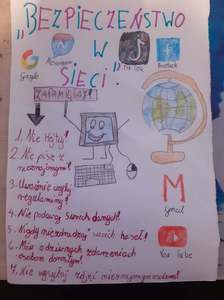 "BEZPIECZEŃSTWO
W
SIECI"
Google
Messenger
Tik Tok
Facebook
ZAPAMIĘTAJ!
1. Nie Hejtuj!
2. Nie pisz z
nieznajomymi!
3. Uważnie czytaj
regulaminy!
4. Nie podawaj swoich danych!
5. Nigdy nie zdradzaj swoich haseł!
6. Mów o dziwnych zdarzeniach
osobom dorosłym!
7. Nie wysyłaj zdjęć nieznajomym osobom!
Gmail
You Tube